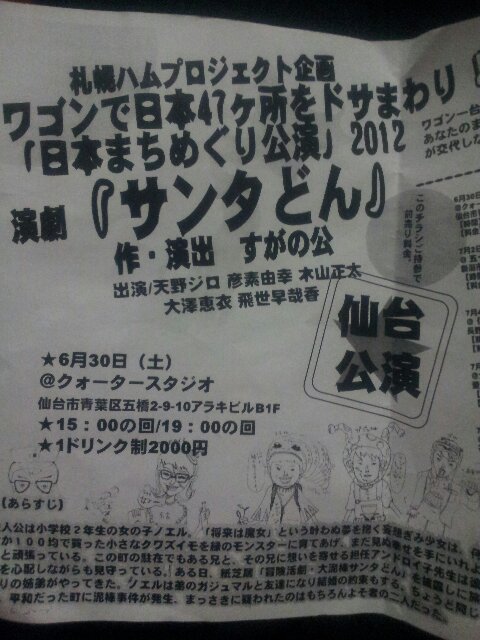 札幌ハムプロジェクト企画
ワゴンで日本47ヶ所をドサまわり
「日本まちめぐり公演」2012
演劇『サンタどん』
作・演出 すがの公
出演/天野ジロ 彦素由幸 木山正太
大澤恵衣 飛世早哉香
仙台
公演
★6月30日（土）
@クォータースタジオ
仙台市青葉区五橋2-9-10アラキビルB1F
★15：00の回/19：00の回
★1ドリンク制2000円
ワゴン一台
あなたのま
が交代しな
このチラシご持参で
前売り料金。
6月30
@クォー
仙台市
7月2
【あらすじ】
人公は小学校２年生の女の子ノエル。「将来は魔女」という叶わぬ夢を抱く妄想ぎみ少女は、
か100均で買った小さなクワズイモを緑のモンスターに育てあげ、まだ見ぬ
と頑張っている。この町の駐在でもある兄と、その兄に想いを寄せる担任アンドロイ子先生は
を心配しながらも見守っている。ある日、紙芝居「冒険活劇・大泥棒サンタどん」を披露しに
りの姉弟がやってきた。ノエルは弟のガジュマルと友達になり結婚の約束もする。
平和だった町に泥棒事件が発生、まっさきに疑われたのはもちろんよそ者の二人だった。